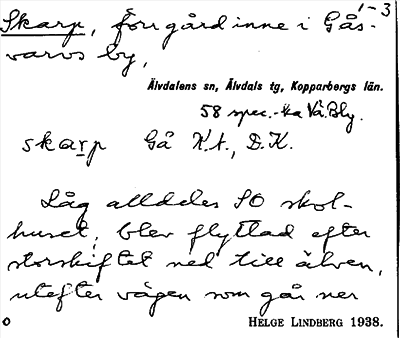 1-3
Skarp, förr gård inne i Gås-
varvs by,
Älvdalens sn, Älvdals tg, Kopparbergs län.
58 spec.-ka Vå. Bly.
skarp Gå K.A., D.K.
Låg alldeles SO skol-
huset, blev flyttad efter
storskiftet ned till älven,
utefter vägen som går ner
HELGE LINDBERG 1938.